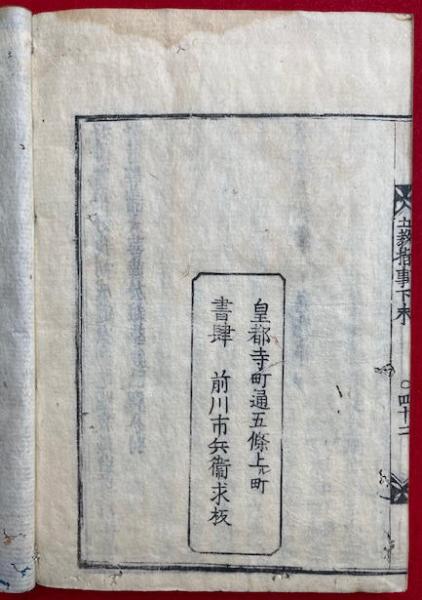 五教指事下末
〇四十二
皇都寺町通五條上ル町
書肆 前川市兵衞求板